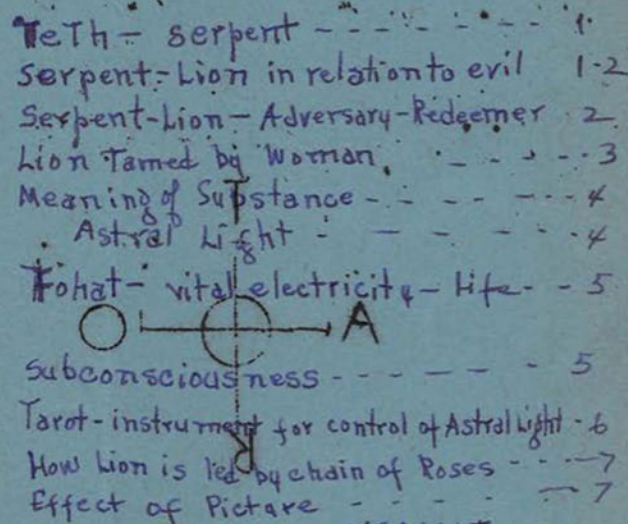 TeTh - serpent - - - - - - - 1.
Serpent-Lion in relation to evil 1-2
Serpent-Lion - Adversary-Redeemer 2
Lion Tamed by Woman. - - - - 3
Meaning of Substance - - - - - - 4
Astral Light - - - - - 4
T
Fohat - vital electricity - life - - 5
O A
Subconsciousness - - - - - - 5
Tarot - instrument for control of Astral Light - 6
R
How Lion is led by chain of Roses - - - 7
Effect of Picture - - - - - 7